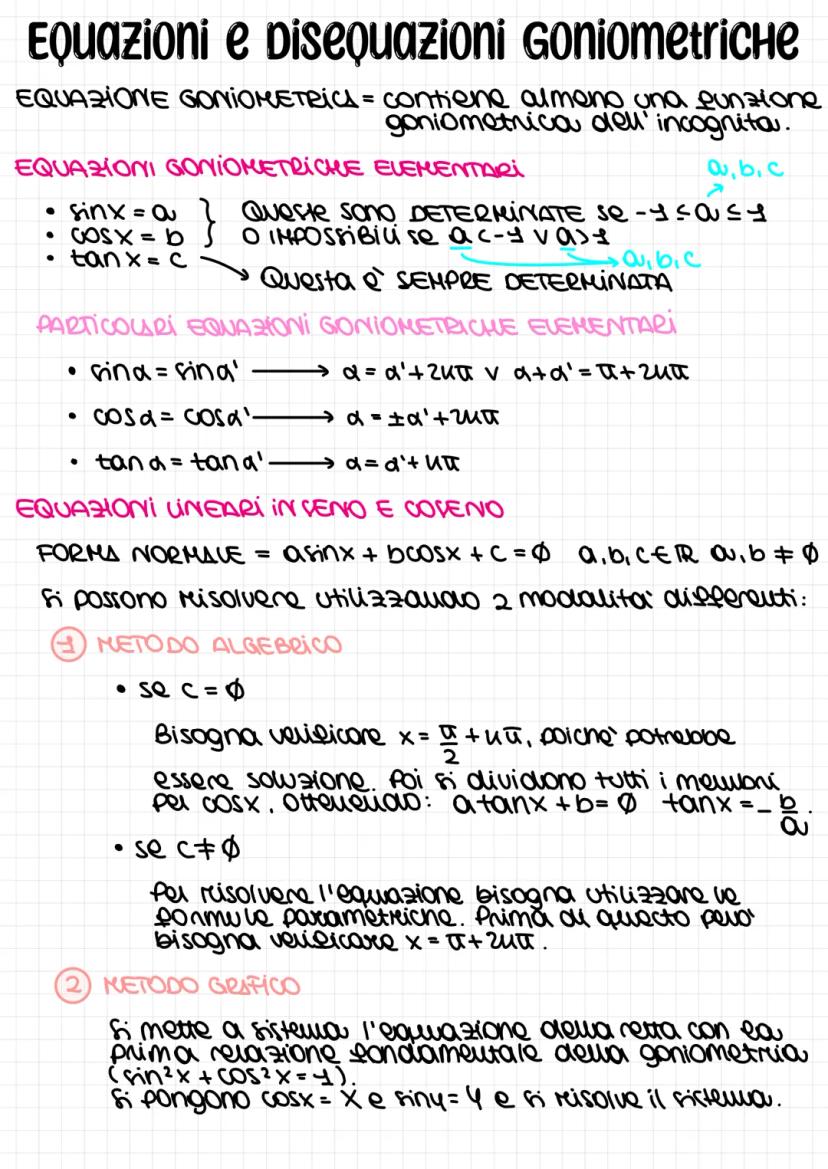 Equazioni e Disequazioni Goniometriche
EQUAZIONE GONIOMETRICA = contiene almeno una funzione
goniometrica dell'incognita.
EQUAZIONI GONIOMETRICHE ELEMENTARI
a, b, c
• sinx = a } Queste sono DETERMINATE se -1 ≤ a ≤ 1
• cosx = b } O IMPOSSIBILI se a < -1 ∨ a > 1
• tanx = c → a, b, c
Questa è SEMPRE DETERMINATA
PARTICOLARI EQUAZIONI GONIOMETRICHE ELEMENTARI
• sinα = sinα' → α = α' + 2kπ ∨ α + α' = π + 2kπ
• cosα = cosα' → α = ±α' + 2kπ
• tanα = tanα' → α = α' + kπ
EQUAZIONI LINEARI IN SENO E COSENO
FORMA NORMALE = asinx + bcosx + c = 0 a, b, c ∈ ℝ a, b ≠ 0
Si possono risolvere utilizzando 2 modalità differenti:
1 METODO ALGEBRICO
• se c = 0
Bisogna verificare x = π/2 + kπ, poichè potrebbe
essere soluzione. Poi si dividono tutti i membri
per cosx, ottenendo: atanx + b = 0 tanx = - b/a.
• se c ≠ 0
Per risolvere l'equazione bisogna utilizzare le
formule parametriche. Prima di questo però
bisogna verificare x = π + 2kπ.
2 METODO GRAFICO
Si mette a sistema l'equazione della retta con la
prima relazione fondamentale della goniometria
(sin²x + cos²x = 1).
Si pongono cosx = X e siny = Y e si risolve il sistema.